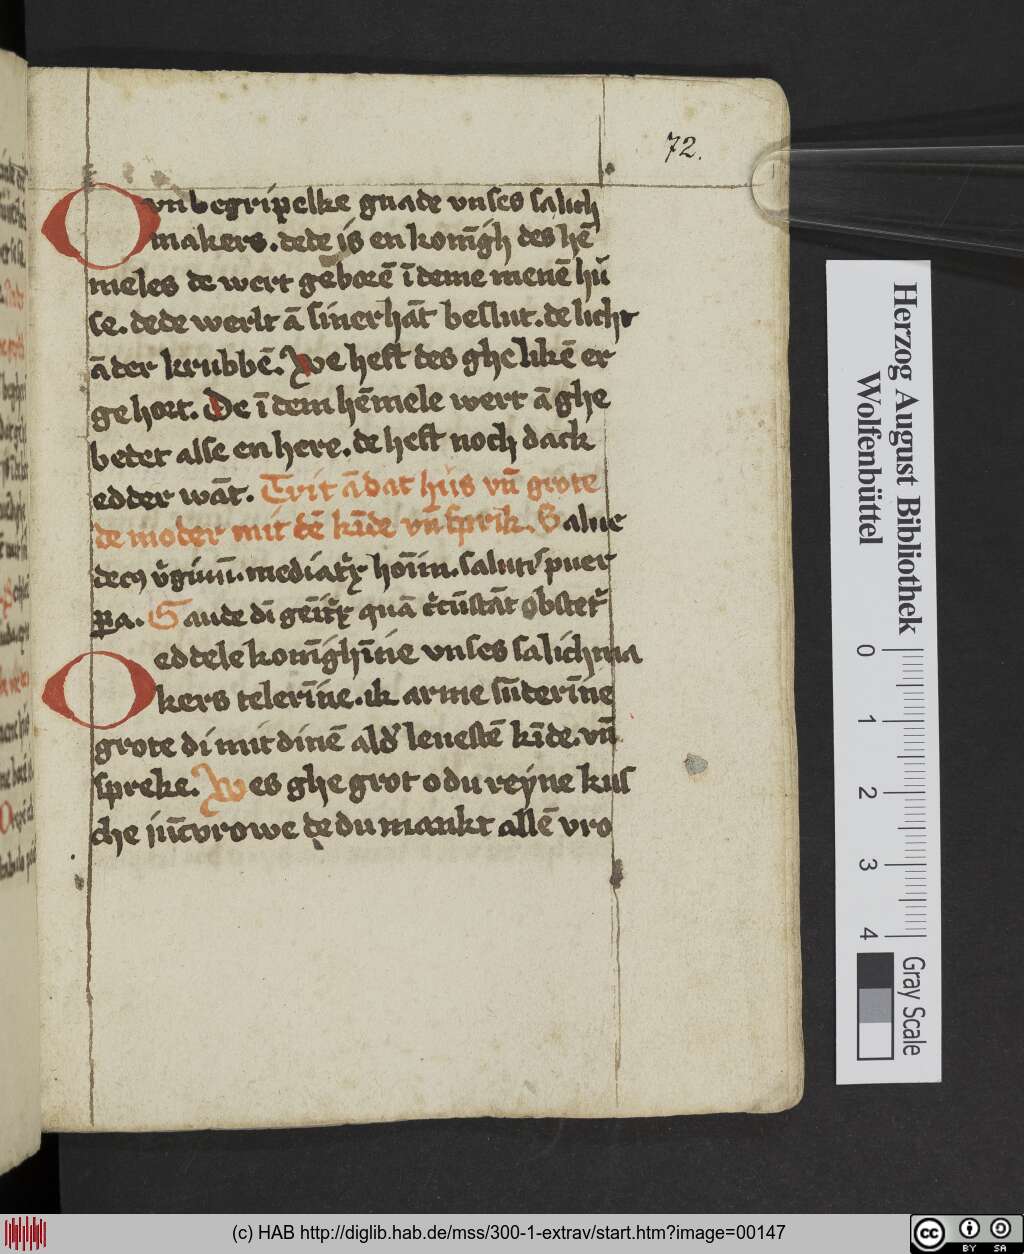 72.
O vnbegripelke gnade vnses salich
makers. dede is en konīgh des hē
meles de wert geborē ī deme menē hu
se. dede werlt ā siner hāt beslut. de licht
ā der krubbē. We heft des ghelikē er
gehort. De ī dem hēmele wert ā ghe
betet alse en here. de heft noch dack
edder wāt. Trit ā dat hus vn̄ grote
de moder mit dē kīde vn̄ sprik. Salue
decꝰ v̓ginū. mediat̓x hoīm. salutis puer
ꝑa. Gaude dī geīt̓x quā c̓cūstāt obstet̓
O eddele konīghīnie vnses salichma
kers telerīne. ik arme sūderīne
grote di mit dinē ald̓ leuestē kīde. vn̄
spreke. Wes ghegrot o du reyne kus
che jūcvrowe de du mankt allē vro
Herzog August Bibliothek
Wolfenbüttel
0 1 2 3 4
Gray Scale
(c) HAB http://diglib.hab.de/mss/300-1-extrav/start.htm?image=00147
cc BY SA